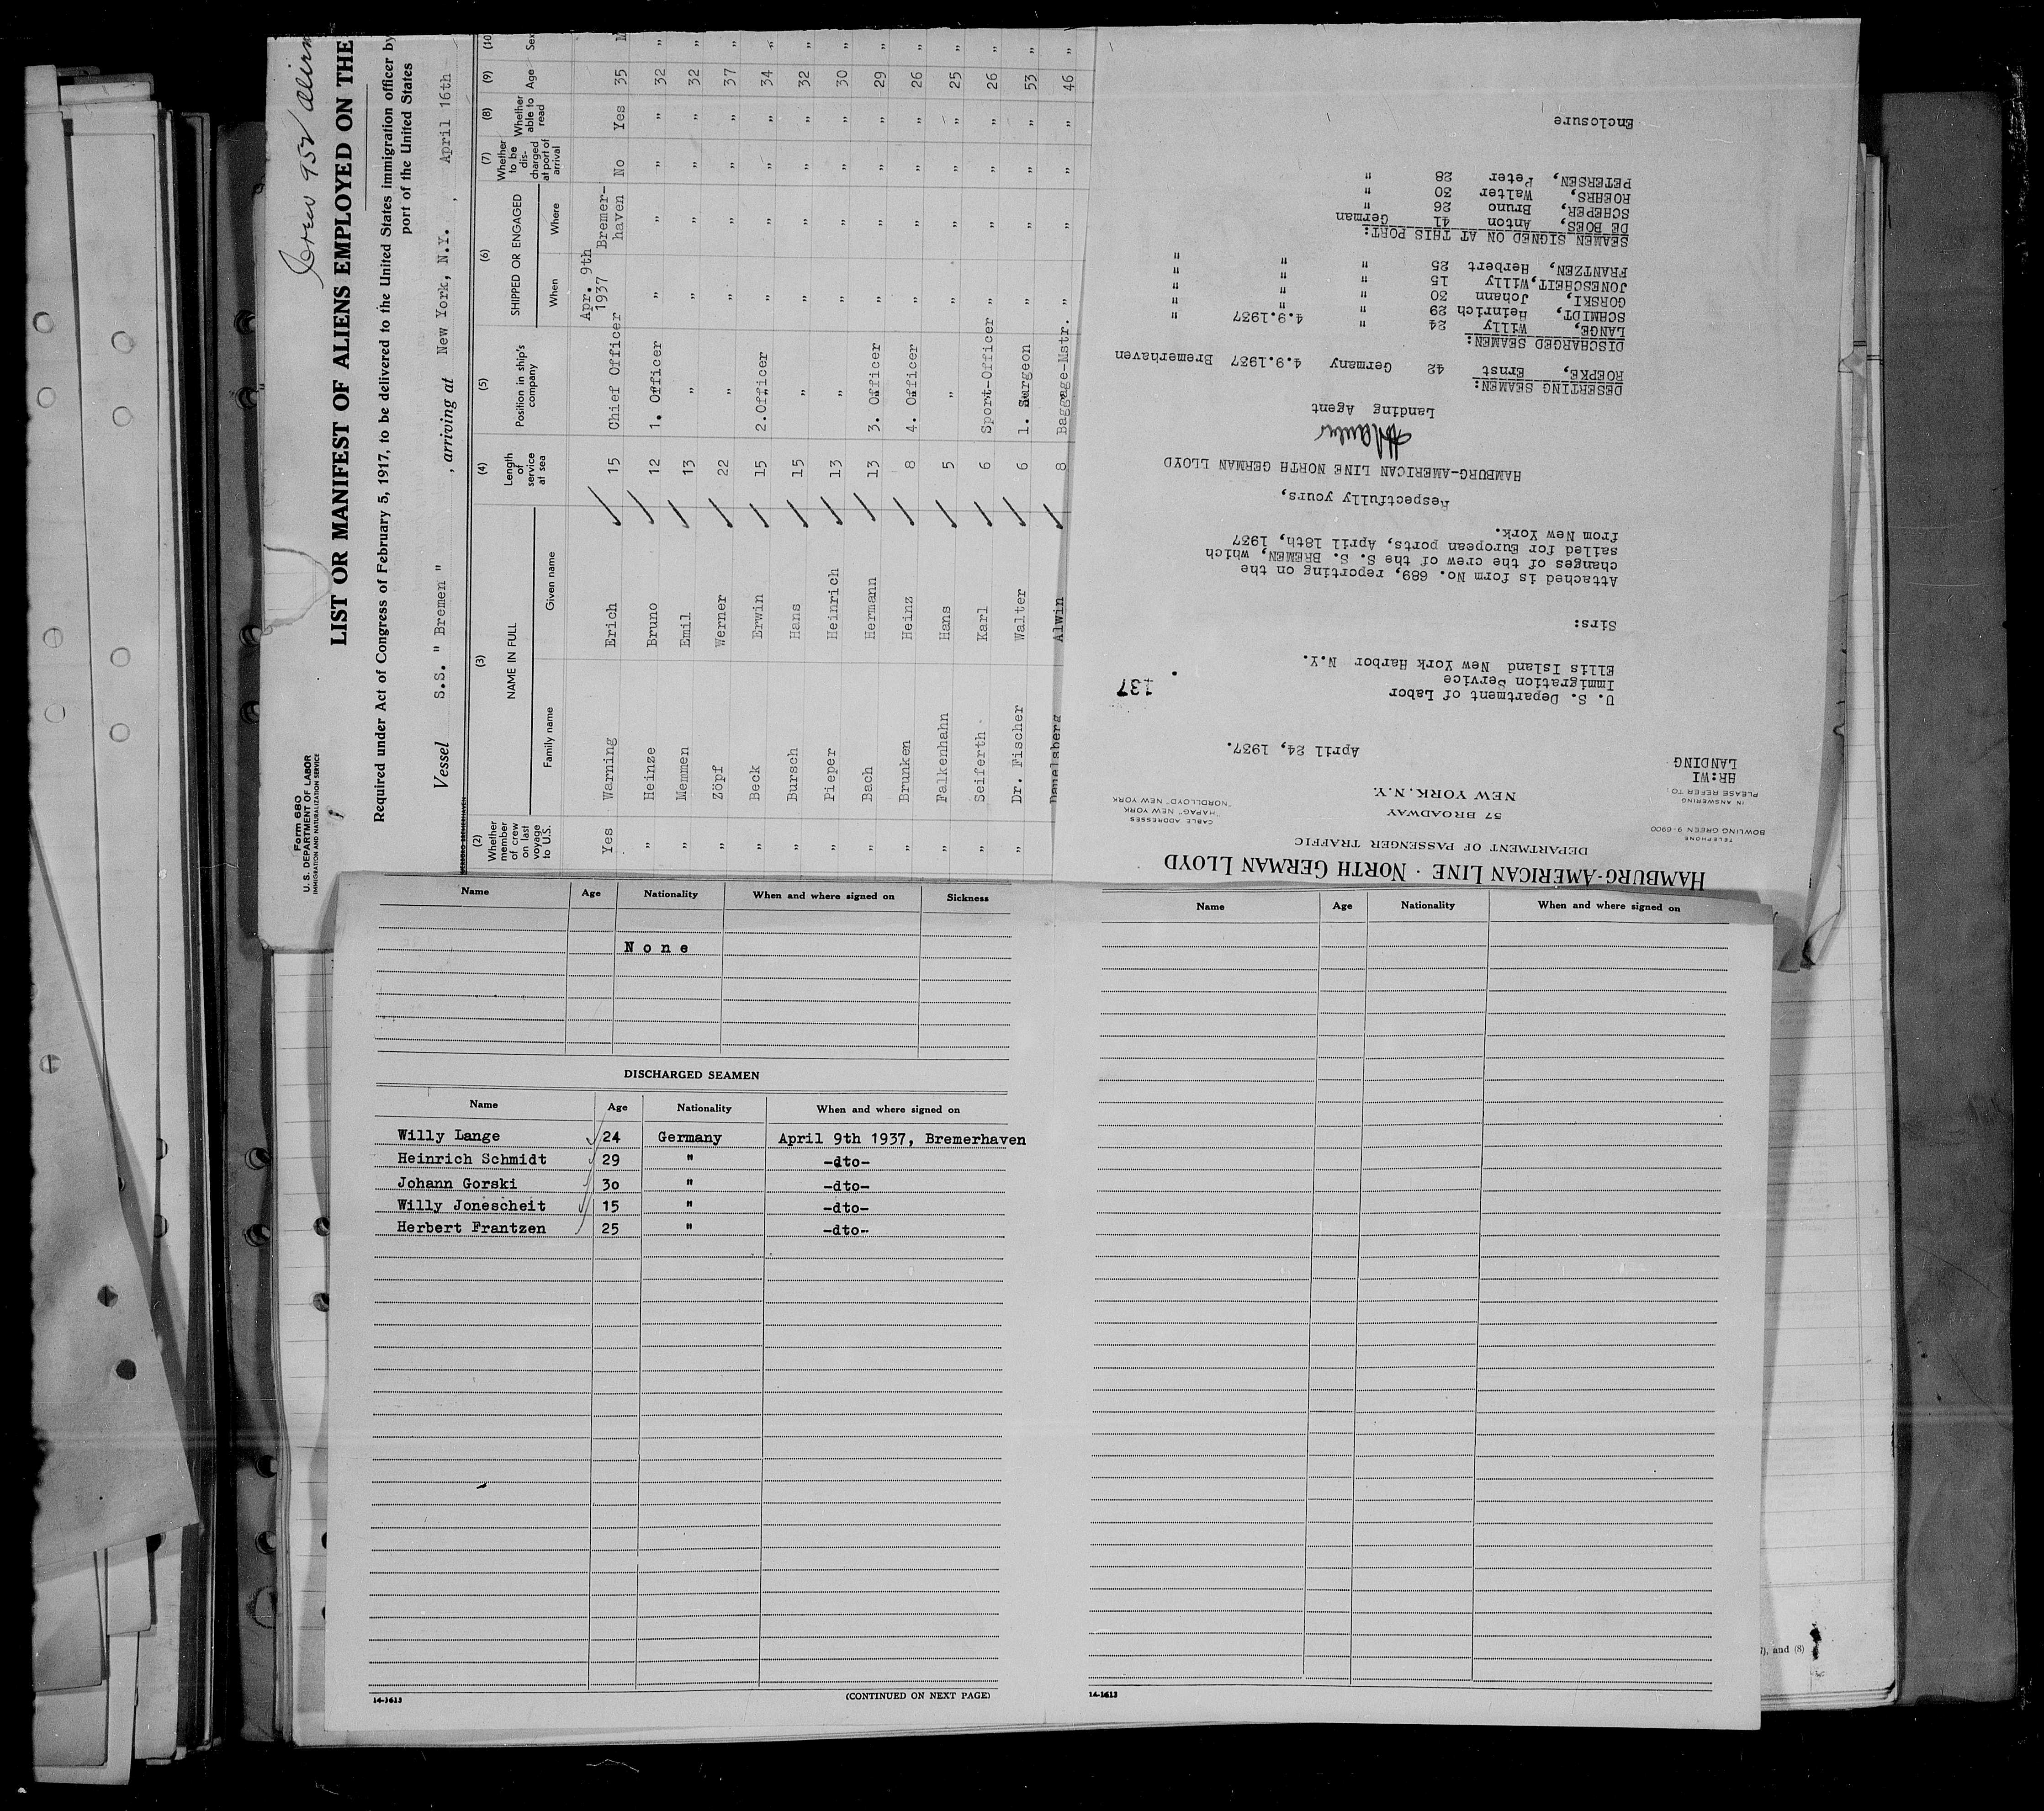 Form 680
U. S. DEPARTMENT OF LABOR
IMMIGRATION AND NATURALIZATION SERVICE
Crew 952
LIST OR MANIFEST OF ALIENS EMPLOYED ON THE
Required under Act of Congress of February 5, 1917, to be delivered to the United States immigration officer by
port of the United States
Vessel S.S. " Bremen " , arriving at New York, N.Y. , April 16th
(2) (3) (4) (5) (6) (7) (8) (9) (10)
Whether member of crew on last voyage to U.S. NAME IN FULL Length of service at sea Position in ship's company SHIPPED OR ENGAGED Whether to be dis-charged at port of arrival Whether able to read Age Sex
Family name Given name When Where
Yes Warning Erich 15 Chief Officer Apr. 9th 1937 Bremer-haven No Yes 35 M
" Heinze Bruno 12 1. Officer " " " " 32 "
" Memmen Emil 13 " " " " " 32 "
" Zöpf Werner 22 " " " " " 37 "
" Beck Erwin 15 2.Officer " " " " 34 "
" Bursch Hans 15 " " " " " 32 "
" Pieper Heinrich 13 " " " " " 30 "
" Bach Hermann 13 3. Officer " " " " 29 "
" Brunken Heinz 8 4. Officer " " " " 26 "
" Falkenhahn Hans 5 " " " " " 25 "
" Seiferth Karl 6 Sport-Officer " " " " 26 "
" Dr. Fischer Walter 6 1. Surgeon " " " " 53 "
Alwin 8 Baggage-Mstr. " " " " 46 "
HAMBURG-AMERICAN LINE · NORTH GERMAN LLOYD
DEPARTMENT OF PASSENGER TRAFFIC
57 BROADWAY
NEW YORK, N.Y.
TELEPHONE
BOWLING GREEN 9-6900
IN ANSWERING
PLEASE REFER TO:
HR:WI
LANDING
CABLE ADDRESSES
"HAPAG" NEW YORK
"NORDLLOYD" NEW YORK
April 24, 1937.
U. S. Department of Labor
Immigration Service
Ellis Island New York Harbor N.Y.
137
Sirs:
Attached is form No. 689, reporting on the
changes of the crew of the S. S. BREMEN, which
sailed for European ports, April 18th, 1937
from New York.
Respectfully yours,
HAMBURG-AMERICAN LINE NORTH GERMAN LLOYD
Landing Agent
DESERTING SEAMEN:
ROEPKE, Ernst 42 Germany 4.9.1937 Bremerhaven
DISCHARGED SEAMEN:
LANGE, Willy 24 " 4.9.1937 "
SCHMIDT, Heinrich 29 " " "
GORSKI, Johann 30 " " "
JONESCHEIT,Willy 15 " " "
FRANTZEN, Herbert 25 " " "
SEAMEN SIGNED ON AT THIS PORT:
DE BOES, Anton 41 German
SCHEPER, Bruno 26 "
ROEHRS, Walter 30 "
PETERSEN, Peter 28 "
Enclosure
Name Age Nationality When and where signed on Sickness
None
DISCHARGED SEAMEN
Name Age Nationality When and where signed on
Willy Lange 24 Germany April 9th 1937, Bremerhaven
Heinrich Schmidt 29 " -dto-
Johann Gorski 30 " -dto-
Willy Jonescheit 15 " -dto-
Herbert Frantzen 25 " -dto-
14-1613 (CONTINUED ON NEXT PAGE)
Name Age Nationality When and where signed on
14-1613
, and (8)